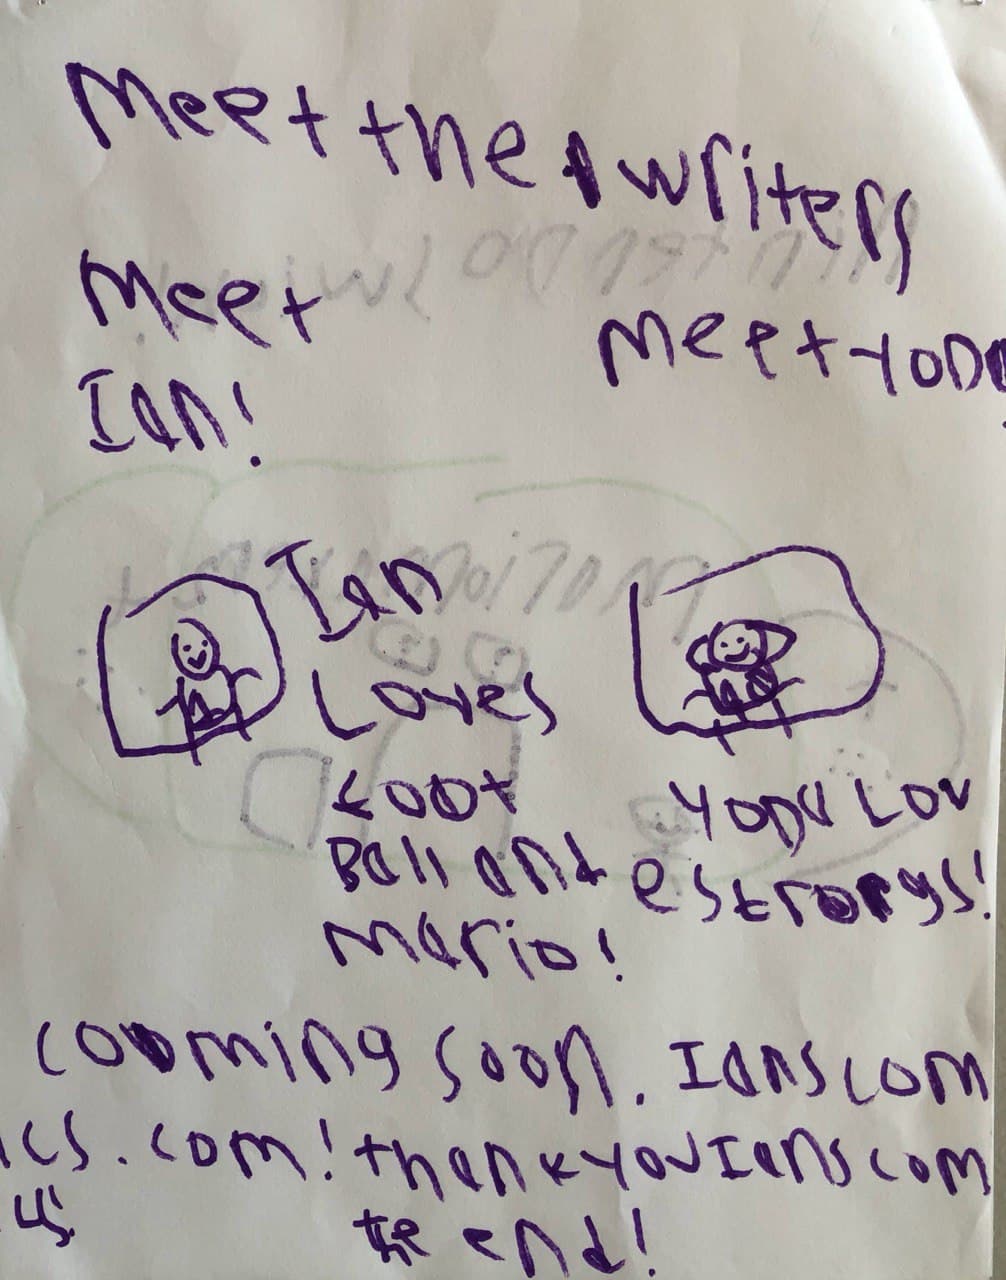 Meet the writers
Meet
Ian!
Meet Yoda
Ian
Loves
Foot
Ball and
Mario!
Yoda Lov
es
Cooming soon. Ians com
ics.com! thank you Ians com
the end!